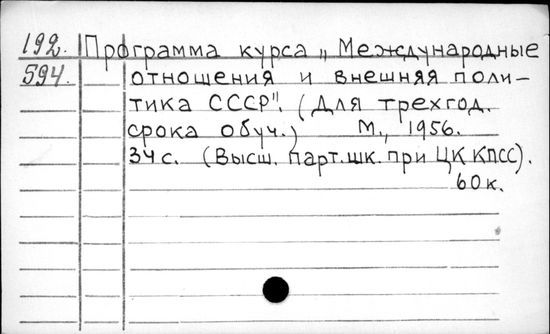 192. Программа курса „Международные
594. отношения и внешняя поли-
тика СССР". (Для трехгод.
срока обуч.) М., 1956.
34с. (Высш. парт.шк. при ЦК КПСС).
60к.